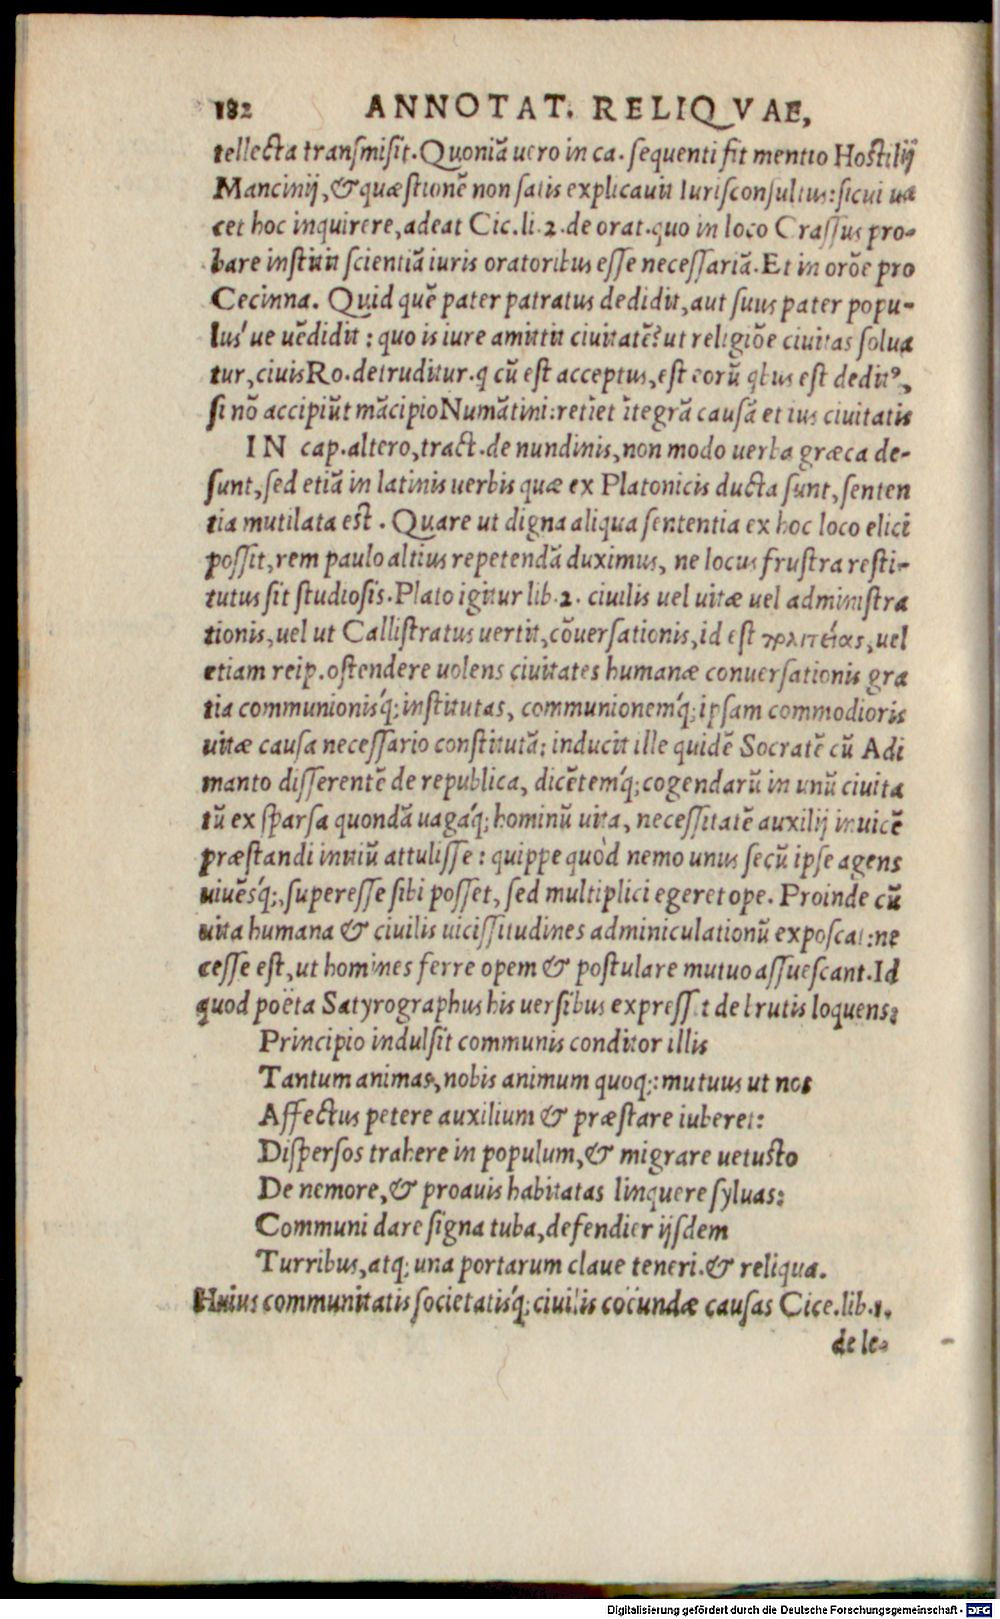 182 ANNOTAT. RELIQVAE,
tellecta transmisit. Quoniā uero in ca. sequenti fit mentio Hostilij
Mancinij, & quæstionē non satis explicauit Iurisconsultus: sicui ua
cet hoc inquirere, adeat Cic. li. 2. de orat. quo in loco Crassus pro-
bare instituit scientiā iuris oratoribus esse necessariā. Et in orōe pro
Cecinna. Quid quē pater patratus dedidit, aut suus pater popu-
lus´ue uēdidit: quo is iure amittit ciuitatē? ut religiōe ciuitas solua
tur, ciuis Ro. detruditur. q cū est acceptus, est eorū qbus est deditꝰ,
si nō accipiūt mācipio Numātini: retiet ītegrā causā et ius ciuitatis
IN cap. altero, tract. de nundinis, non modo uerba græca de-
sunt, sed etiā in latinis uerbis quæ ex Platonicis ducta sunt, senten
tia mutilata est. Quare ut digna aliqua sententia ex hoc loco elici
possit, rem paulo altius repetendā duximus, ne locus frustra resti-
tutus sit studiosis. Plato igitur lib. 2. ciuilis uel uitæ uel administra
tionis, uel ut Callistratus uertit, cōuersationis, id est πολιτείας, uel
etiam reip. ostendere uolens ciuitates humanæ conuersationis gra
tia communionisq́; institutas, communionemq́; ipsam commodioris
uitæ causa necessario constitutā: inducit ille quidē Socratē cū Adi
manto disserentē de republica, dicētemq́; cogendarū in unū ciuita
tū ex sparsa quondā uagaq́; hominū uita, necessitatē auxilij inuicē
præstandi initiū attulisse: quippe quòd nemo unus secū ipse agens
uiuēsq́;, superesse sibi posset, sed multiplici egeret ope. Proinde cū
uita humana & ciuilis uicissitudines adminiculationū exposcat: ne
cesse est, ut homines ferre opem & postulare mutuo assuescant. Id
quod poëta Satyrographus his uersibus expressit de brutis loquens:
Principio indulsit communis conditor illis
Tantum animas, nobis animum quoq;: mutuus ut nos
Affectus petere auxilium & præstare iuberet:
Dispersos trahere in populum, & migrare uetusto
De nemore, & proauis habitatas linquere syluas:
Communi dare signa tuba, defendier ijsdem
Turribus, atq; una portarum claue teneri. & reliqua.
Huius communitatis societatisq́; ciuilis coeundæ causas Cice. lib. 1.
de le-
Digitalisierung gefördert durch die Deutsche Forschungsgemeinschaft - DFG